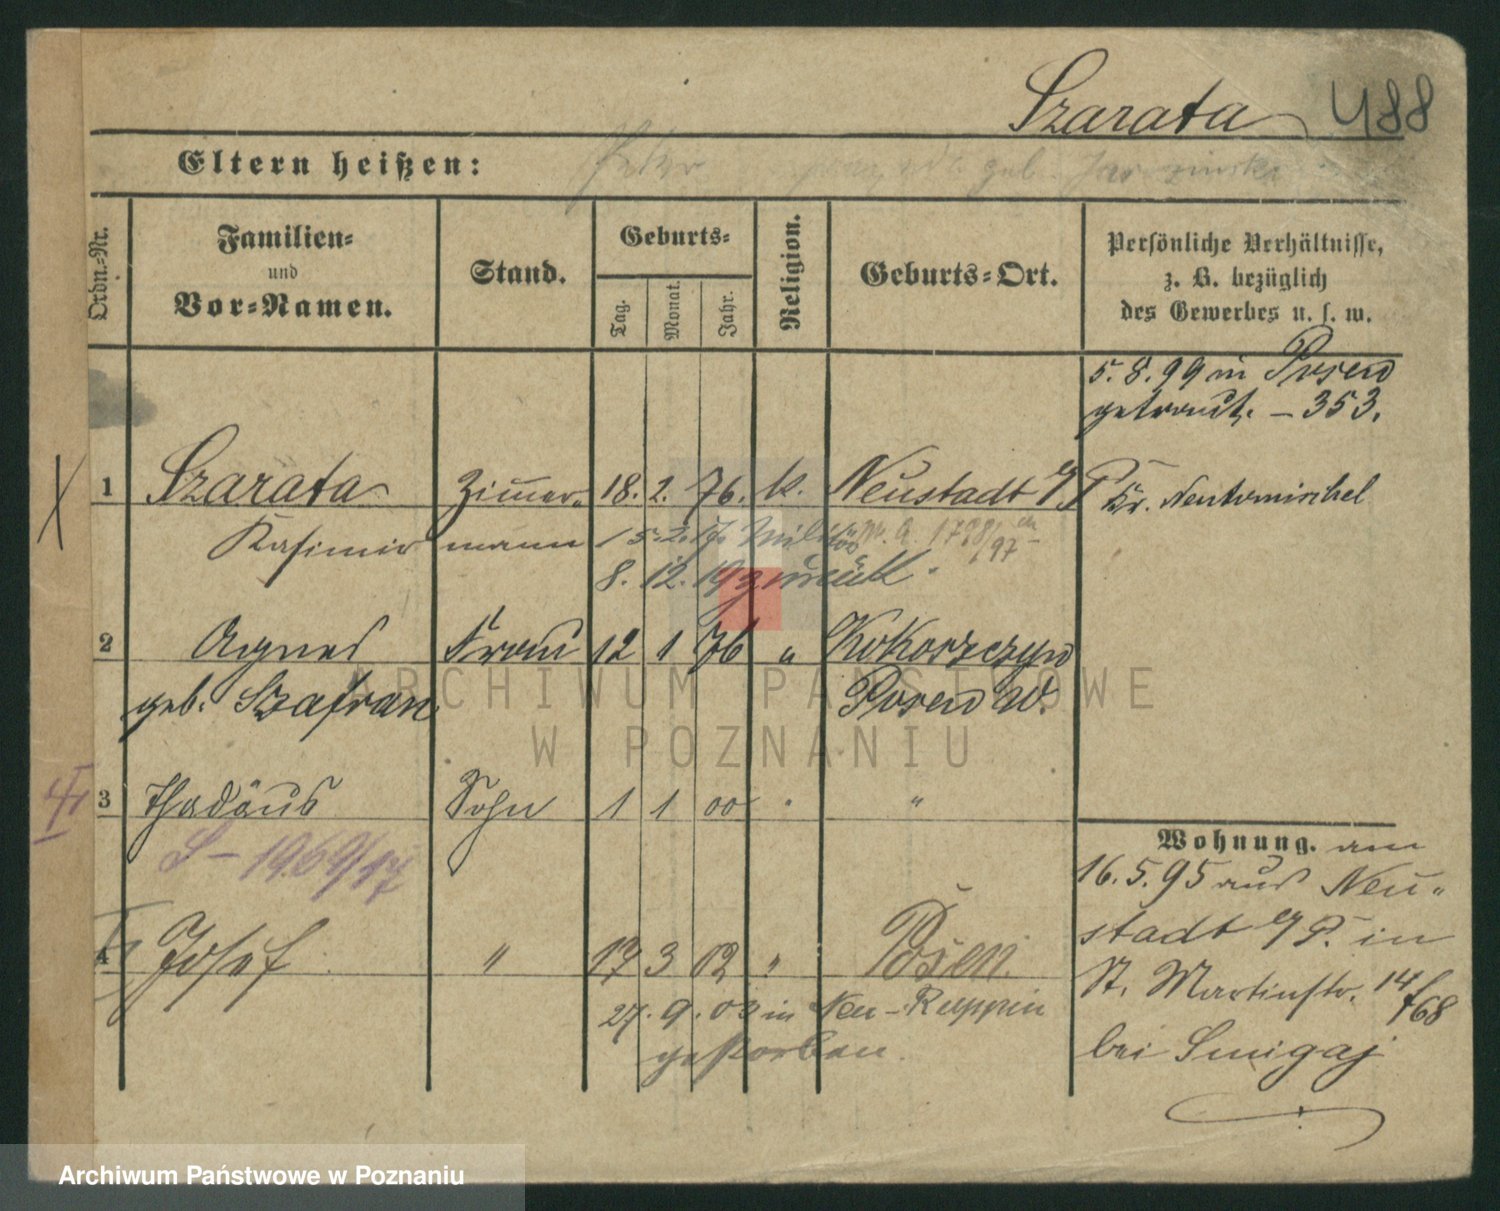 Szarata 488
Eltern heißen: Peter geb.
Ordn.-Nr.
Familien-
und
Vor-Namen.
Stand.
Geburts-
Tag.
Monat.
Jahr.
Religion.
Geburts-Ort.
Persönliche Verhältnisse,
z. B. bezüglich
des Gewerbes u. s. w.
5. 8. 99 in Posen
getraut. – 353.
1 Szarata Zimmer- 18. 2. 76. k. Neustadt a/P Kr. Neutomischel
Kasimir mann 15. 2. 17. Militär
8. 12. 19 zurück.
2 Agnes Frau 12 1 76 " Kokoszczyn
geb. Szafran Posen W.
3 Thadäus Sohn 1 1 00 " "
S – 1969/17
4 Josef " 17 3 02 " Posen.
27. 9. 03 in Neu-Ruppin
gestorben.
Wohnung. am
16. 5. 95 aus Neu-
stadt a/P. in
St. Martinstr. 14/68
bei Smigaj
ARCHIWUM PAŃSTWOWE
W POZNANIU
Archiwum Państwowe w Poznaniu